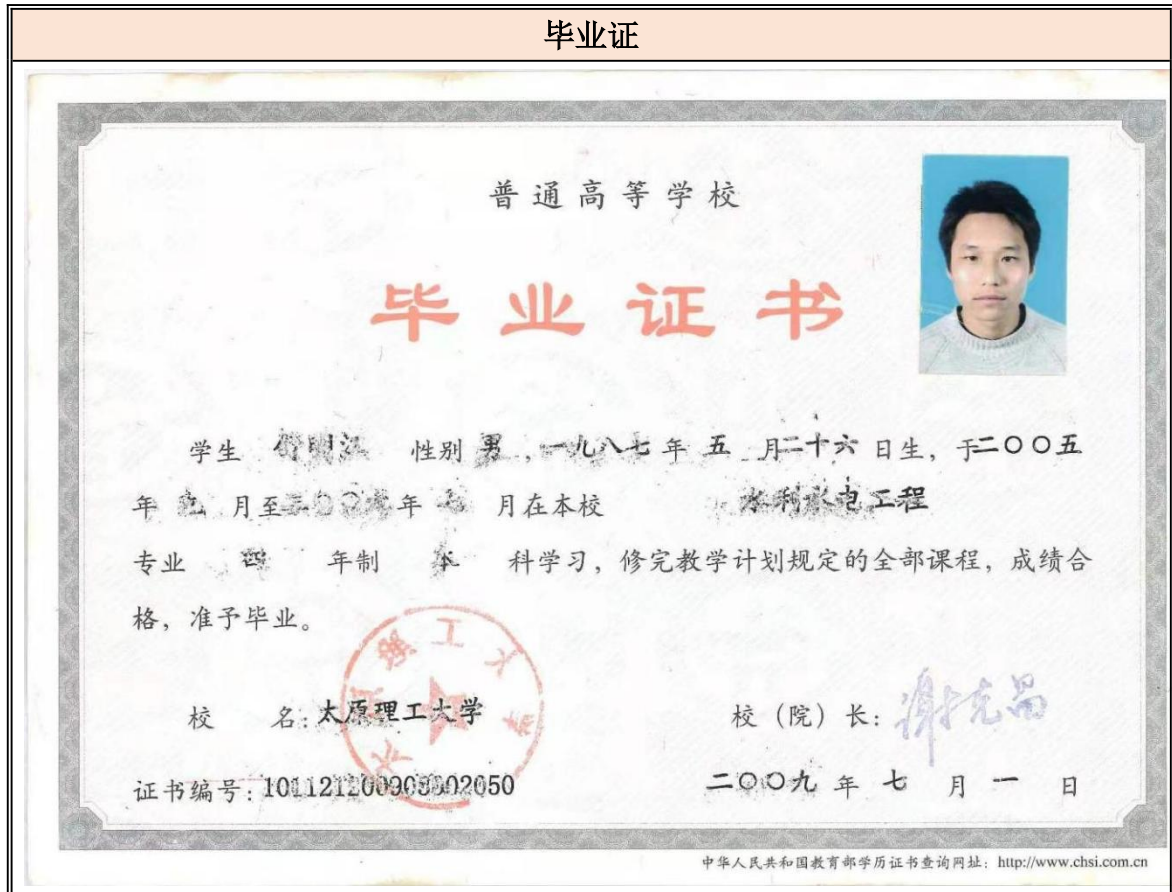 毕业证
普通高等学校
毕业证书
学生 明江 性别 男，一九八七 年 五 月二十六 日生，于二〇〇五
年 九 月至二〇〇九年 七 月在本校 水利水电工程
专业 四 年制 本 科学习，修完教学计划规定的全部课程，成绩合
格，准予毕业。
校 名：太原理工大学 校（院）长：谢克昌
证书编号： 二〇〇九 年 七 月 一 日
中华人民共和国教育部学历证书查询网址：http://www.chsi.com.cn